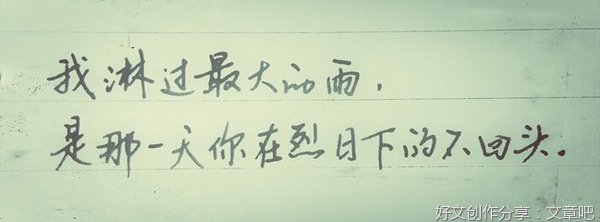 我淋过最大的雨，
是那一天你在烈日下的不回头。
好文创作分享：文章吧